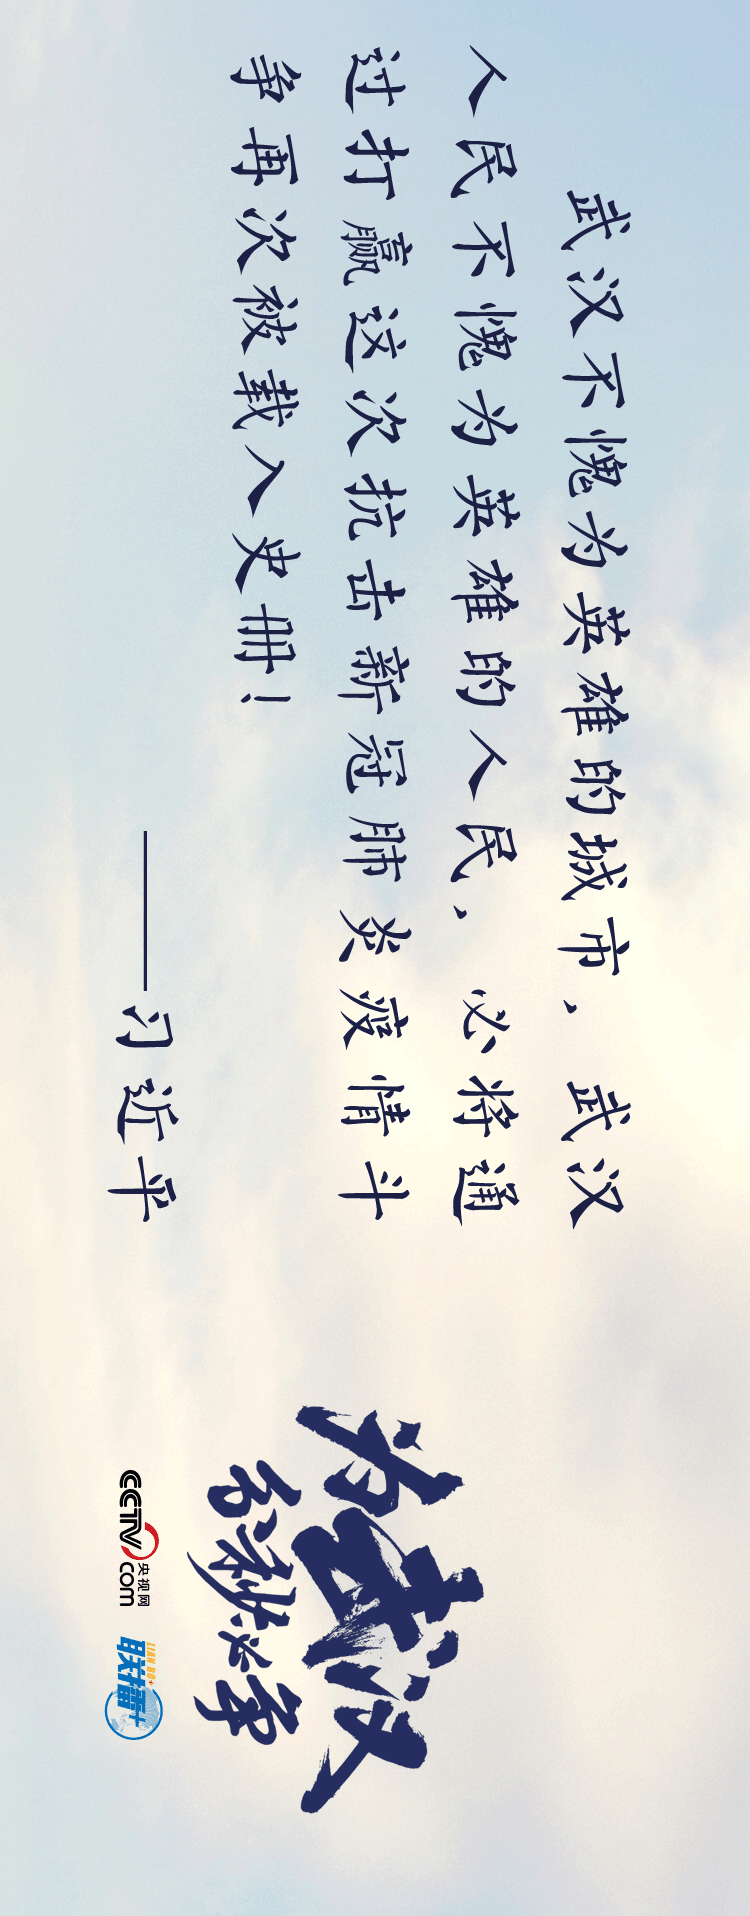 武汉不愧为英雄的城市，武汉
人民不愧为英雄的人民，必将通
过打赢这次抗击新冠肺炎疫情斗
争再次被载入史册！
——习近平
为武汉
分秒必争
CCTV.com
央视网
LIAN BO+
联播+